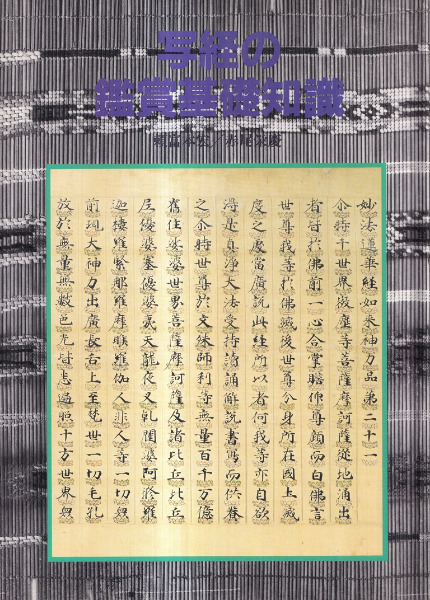 写経の
鑑賞基礎知識
頼富本宏・赤尾栄慶
妙法蓮華經如来神力品第二十一
尒時千世界微塵等菩薩摩訶薩從地涌出
者皆於佛前一心合掌瞻仰尊顔而白佛言
世尊我等於佛滅後世尊分身所在國土滅
度之處當廣説此經所以者何我等亦自欲
得是真淨大法受持讀誦解説書寫而供養
之尒時世尊於文殊師利等無量百千万億
舊住娑婆世界菩薩摩訶薩及諸比丘比丘
尼優婆塞優婆夷天龍夜叉乾闥婆阿修羅
迦樓羅緊那羅摩睺羅伽人非人等一切衆
前現大神力出廣長舌上至梵世一切毛孔
放於無量無數色光皆悉遍照十方世界衆